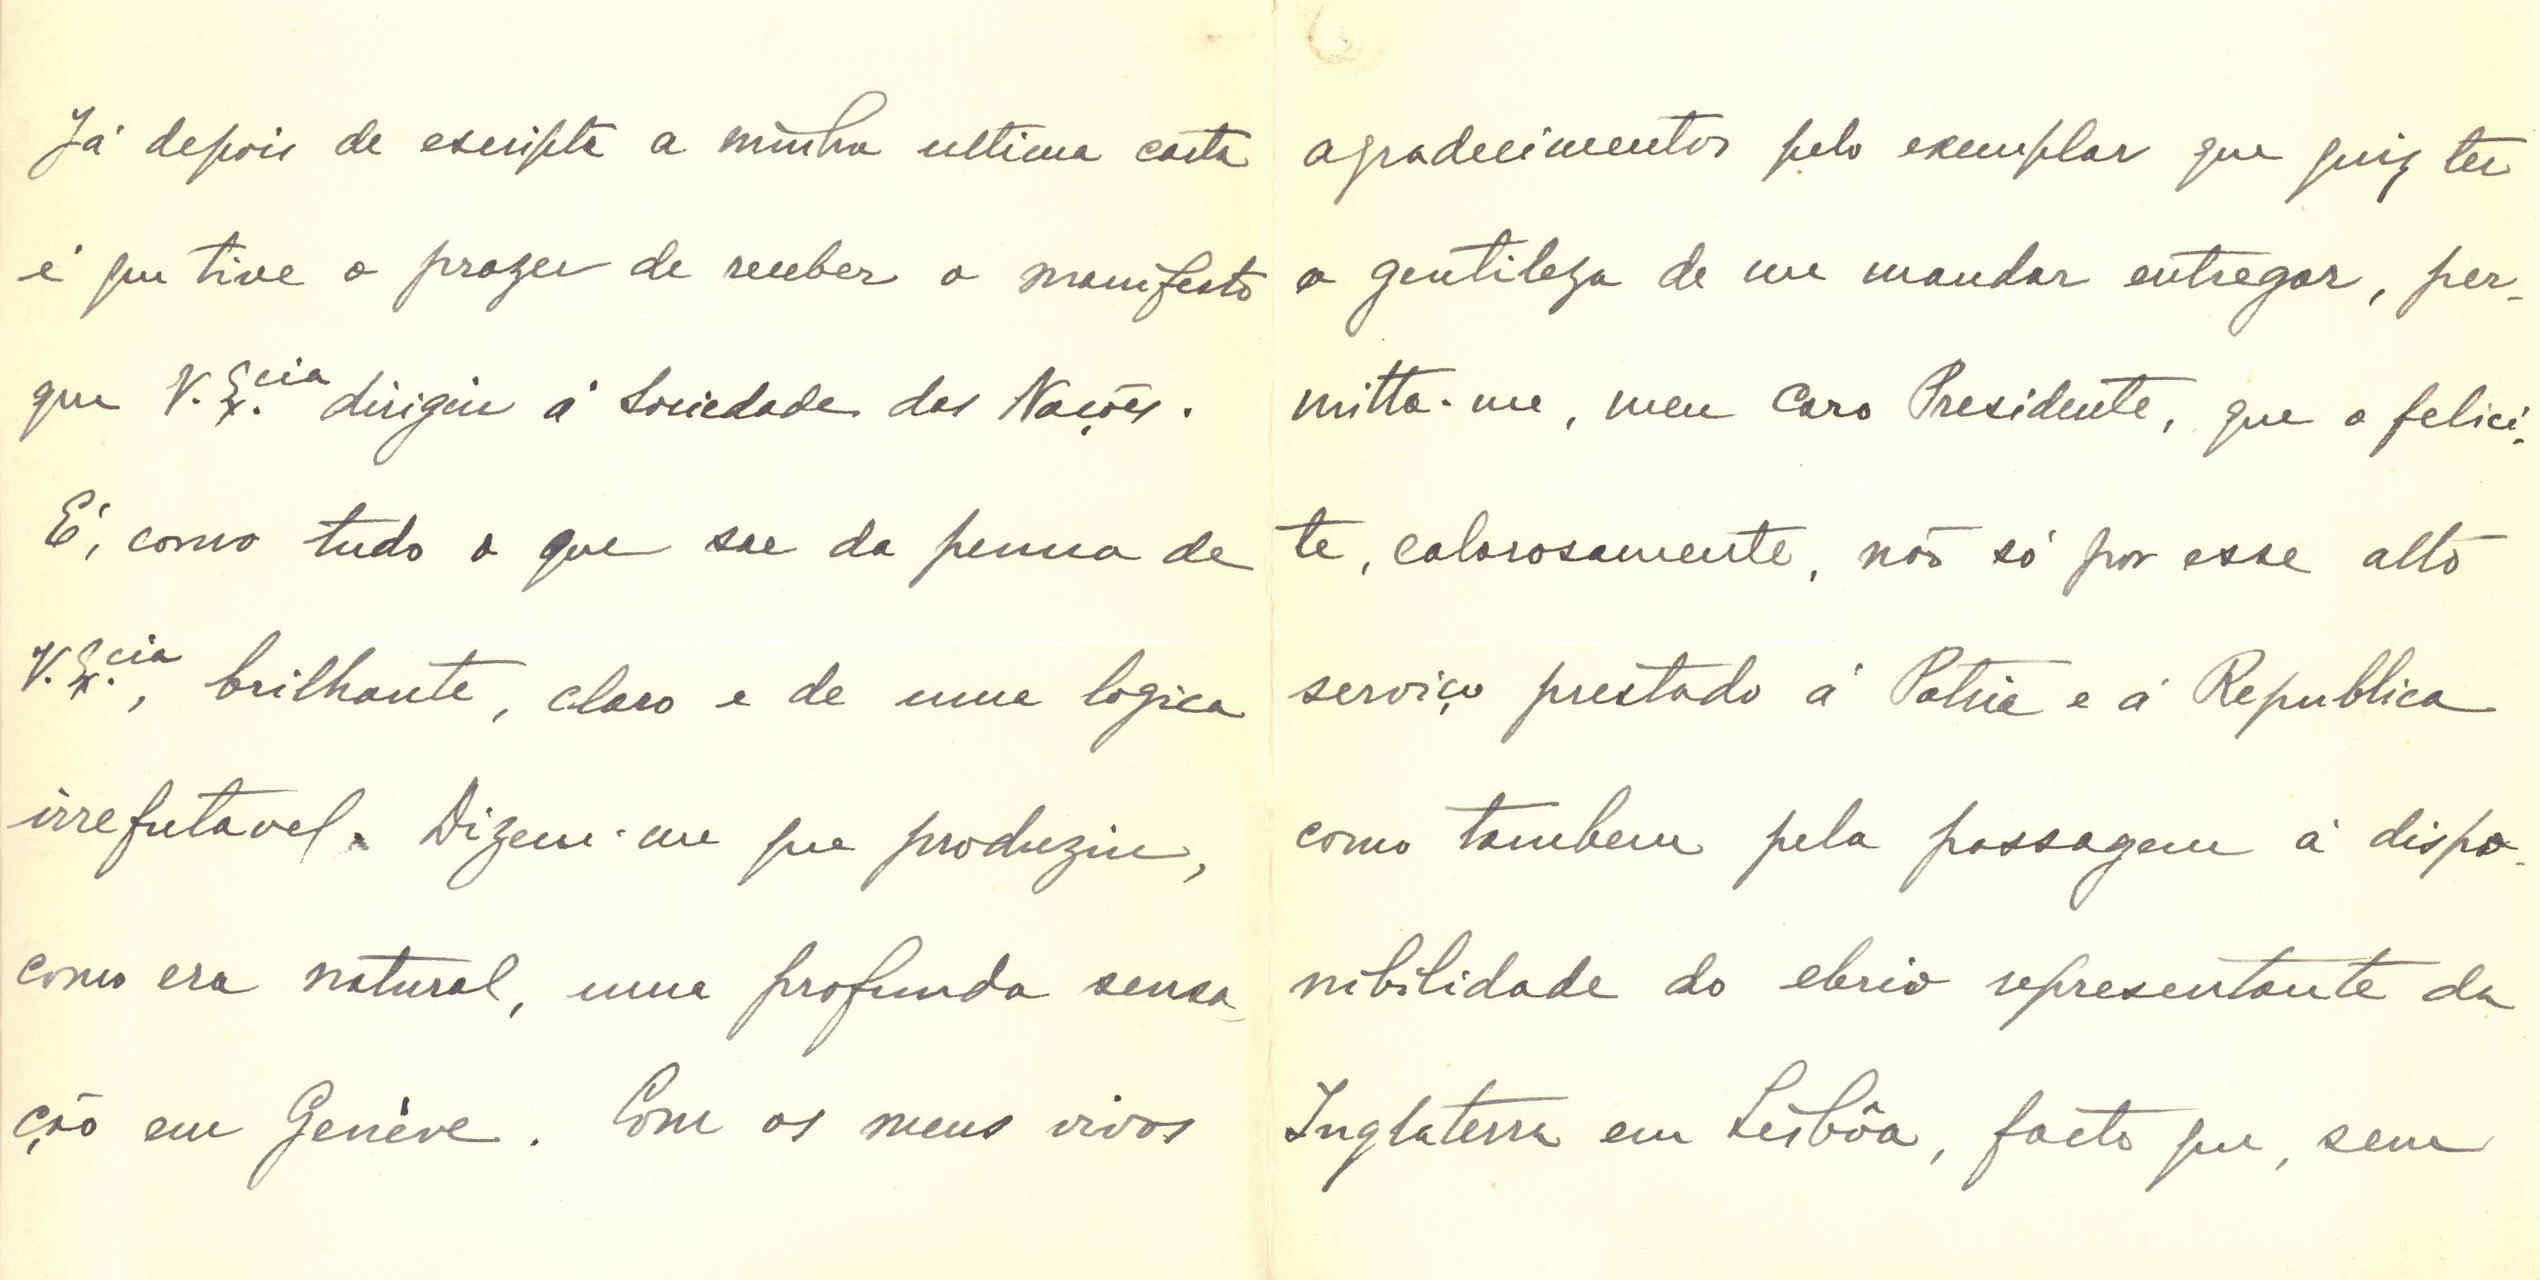 Já depois de escripta a minha ultima carta
é que tive o prazer de receber o manifesto
que V. Ex.cia dirigiu á Sociedade das Nações.
É, como tudo o que sae da penna de
V. Ex.cia, brilhante, claro e de uma logica
irrefutavel. Dizem-me que produziu,
como era natural, uma profunda sensa-
ção em Genève. Com os meus vivos
agradecimentos pelo exemplar que quiz ter
a gentileza de me mandar entregar, per-
mitta-me, meu caro Presidente, que o felici-
te, calorosamente, não só por esse alto
serviço prestado á Patria e á Republica
como tambem pela passagem á dispo-
nibilidade do ebrio representante da
Inglaterra em Lisbôa, facto que, sem